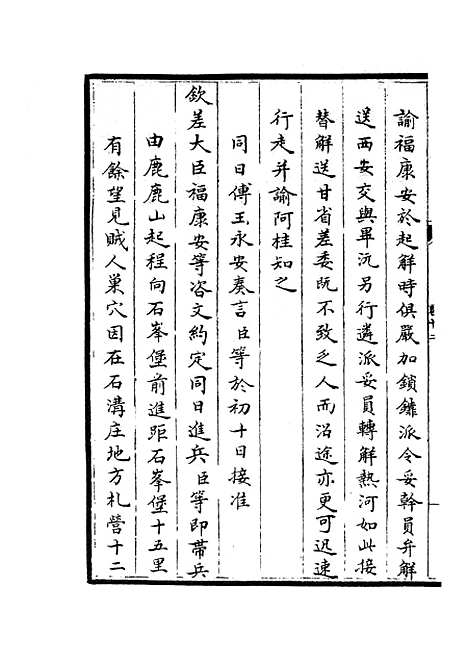 諭福康安於起解時俱嚴加鎖鏞派令妥幹員弁解
送西安交與畢沅另行遴派妥員轉解熱河如此接
替解送甘省差委既不致乏人而沿途亦更可迅速
行走并諭阿桂知之
同日傅玉永安奏言臣等於初十日接准
欽差大臣福康安等咨文約定同日進兵臣等即帶兵
由鹿鹿山起程向石峯堡前進距石峯堡十五里
有餘望見賊人巢穴因在石溝庄地方札營十二